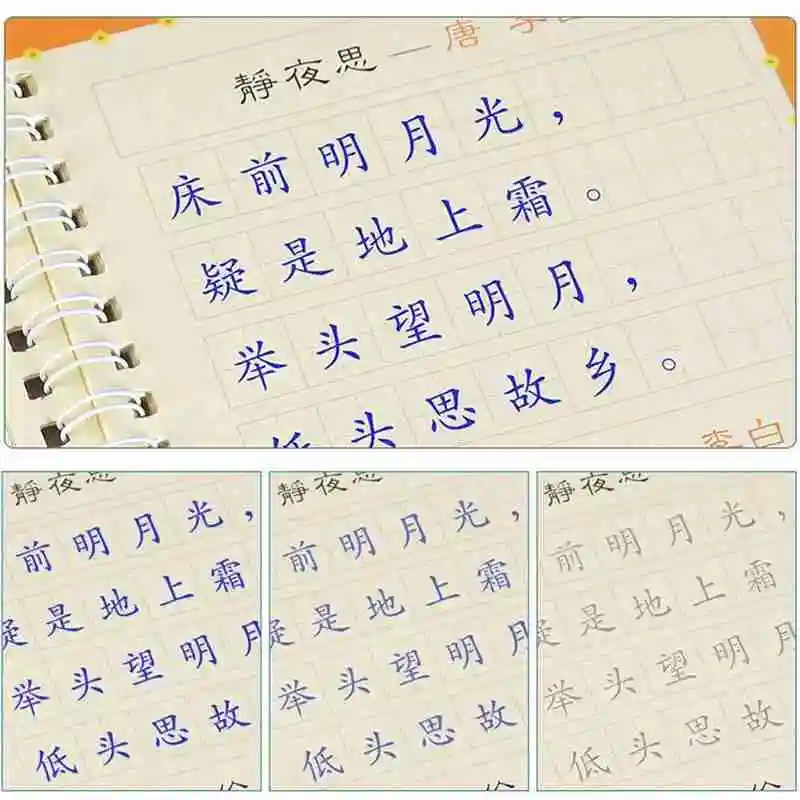 靜夜思—唐 李
床前明月光，
疑是地上霜。
举头望明月，
低头思故乡。
李白
靜夜思
前明月光，
疑是地上霜
举头望明月
低头思故
靜夜思
前明月光，
疑是地上霜
举头望明月
低头思故
靜夜思
前明月光，
疑是地上霜
举头望明月
低头思故